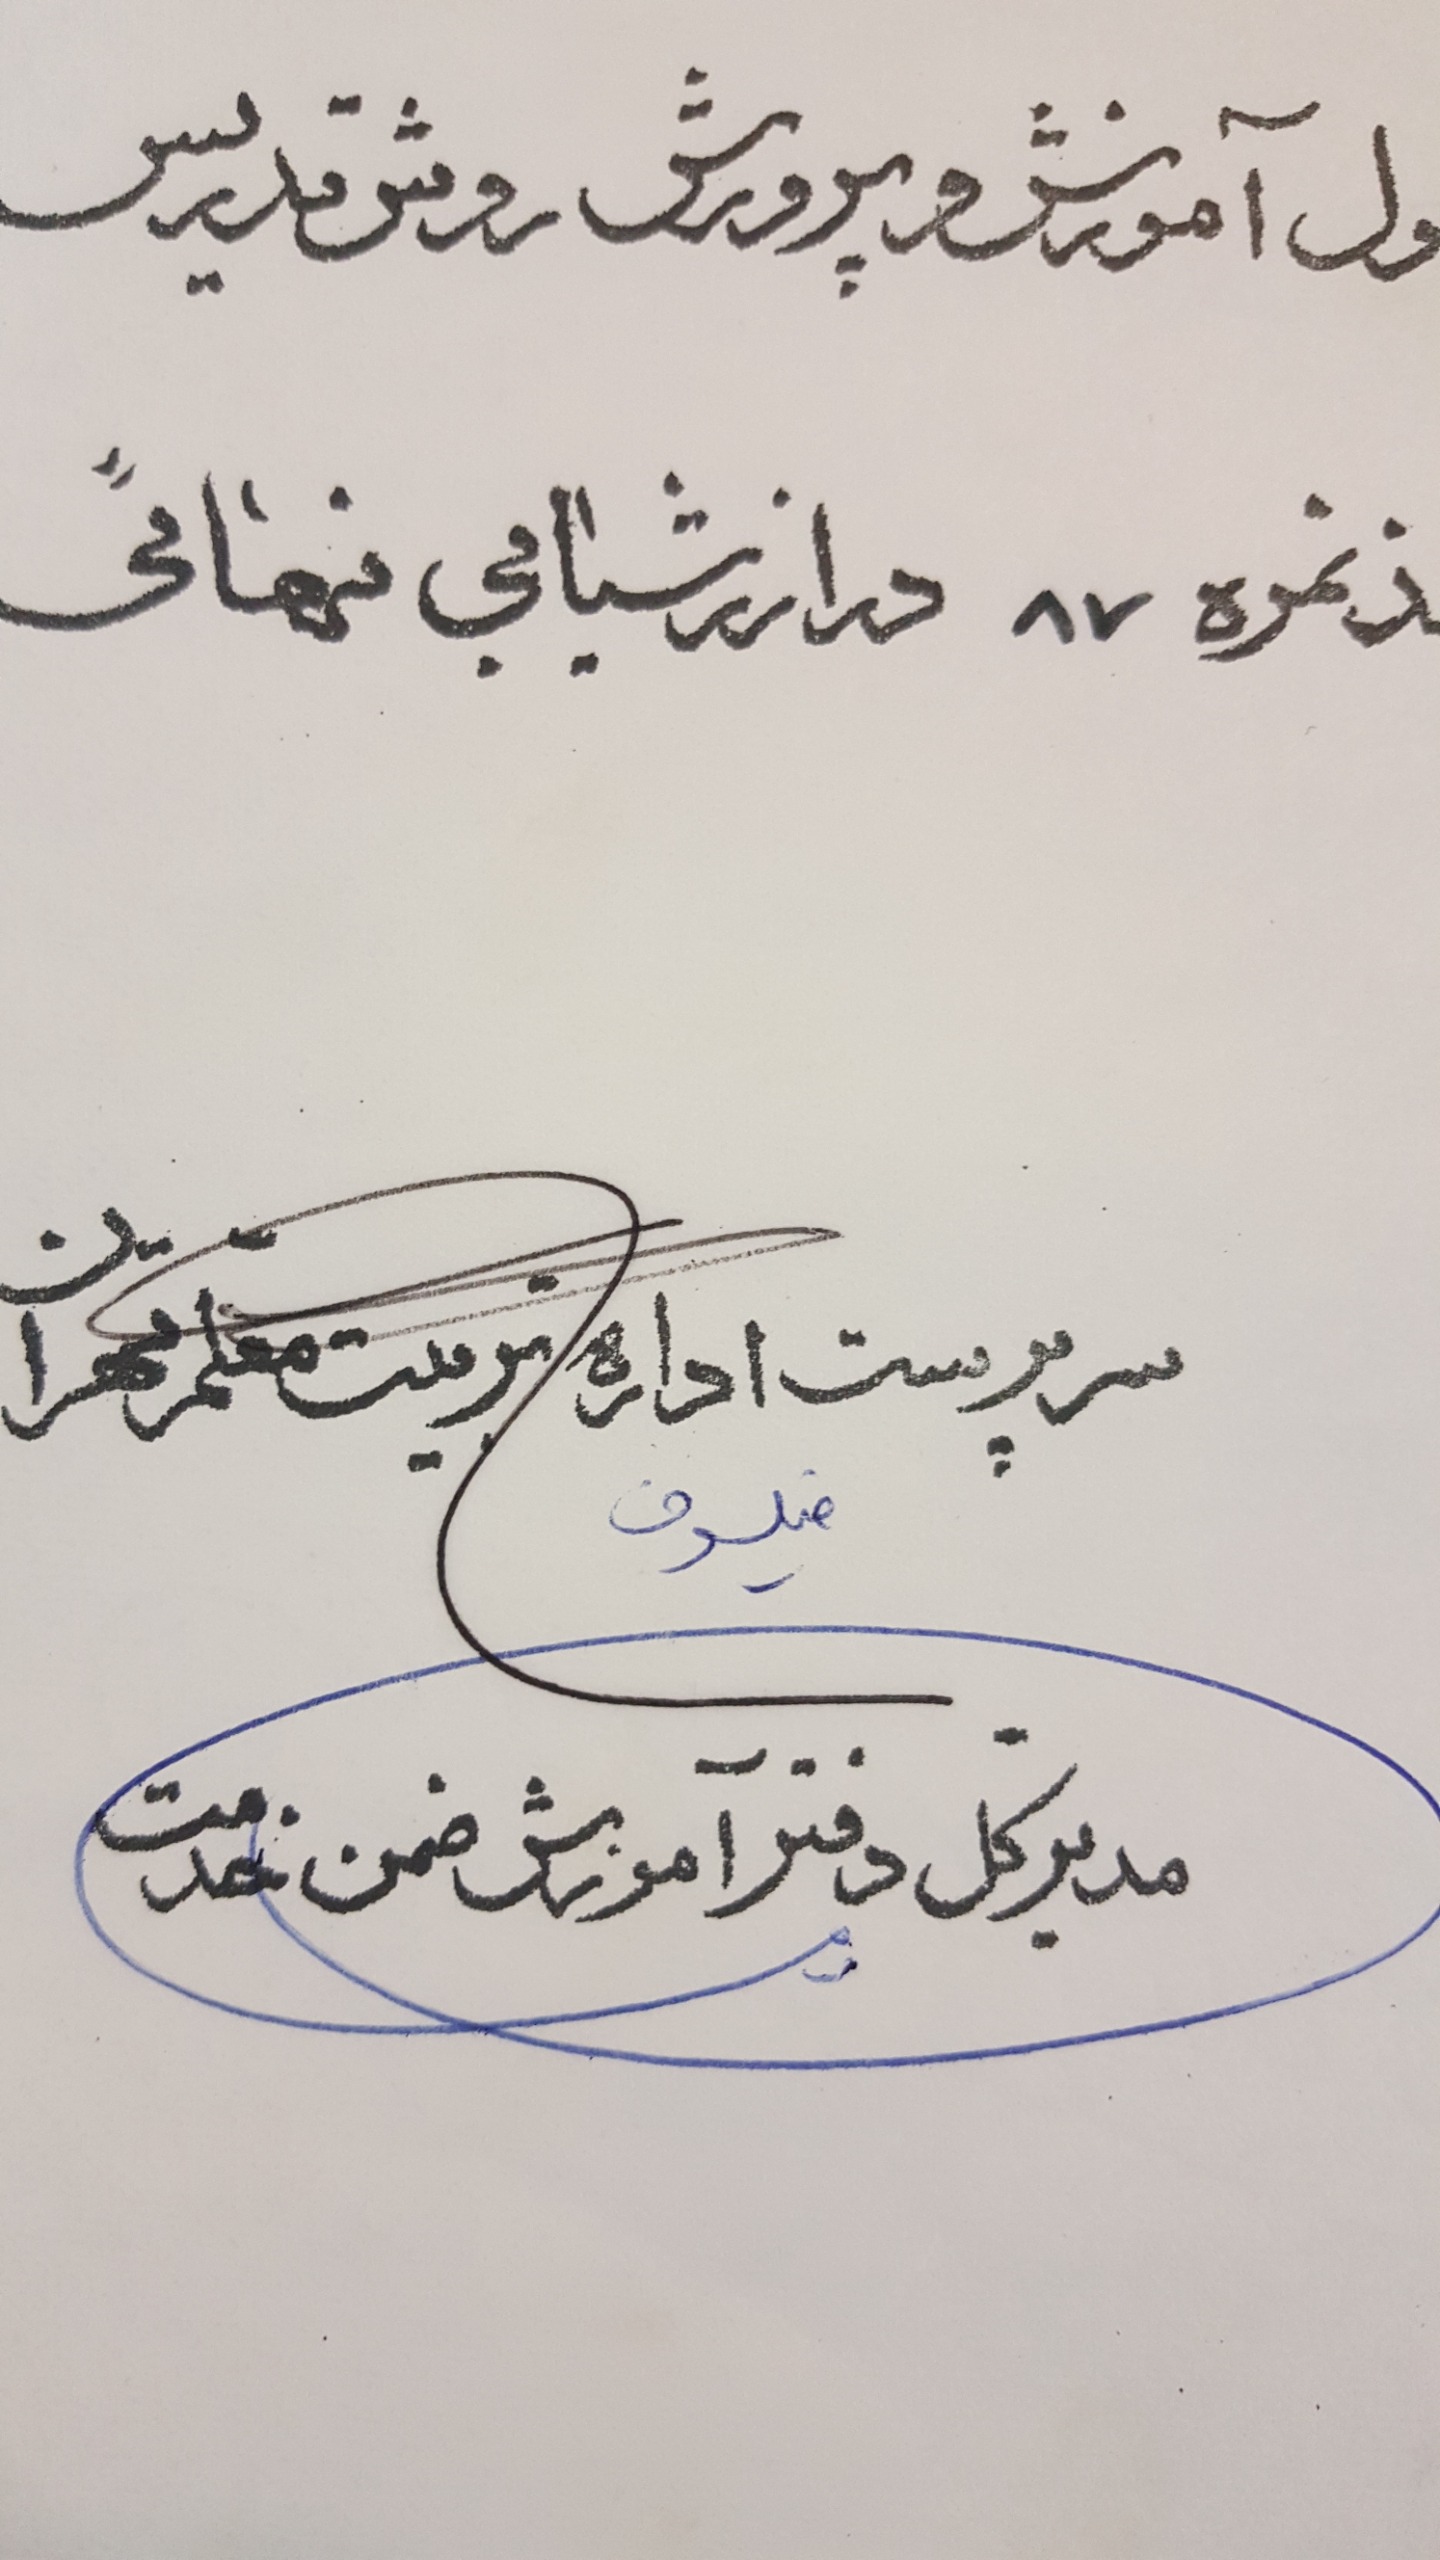 ول آموزش و پرورش روش تدریس
ذ نمره ۸۷ در ارزشیابی نهائی
سرپرست اداره تربیت معلم تهران
فیلسوف
مدیر کل دفتر آموزش ضمن خدمت